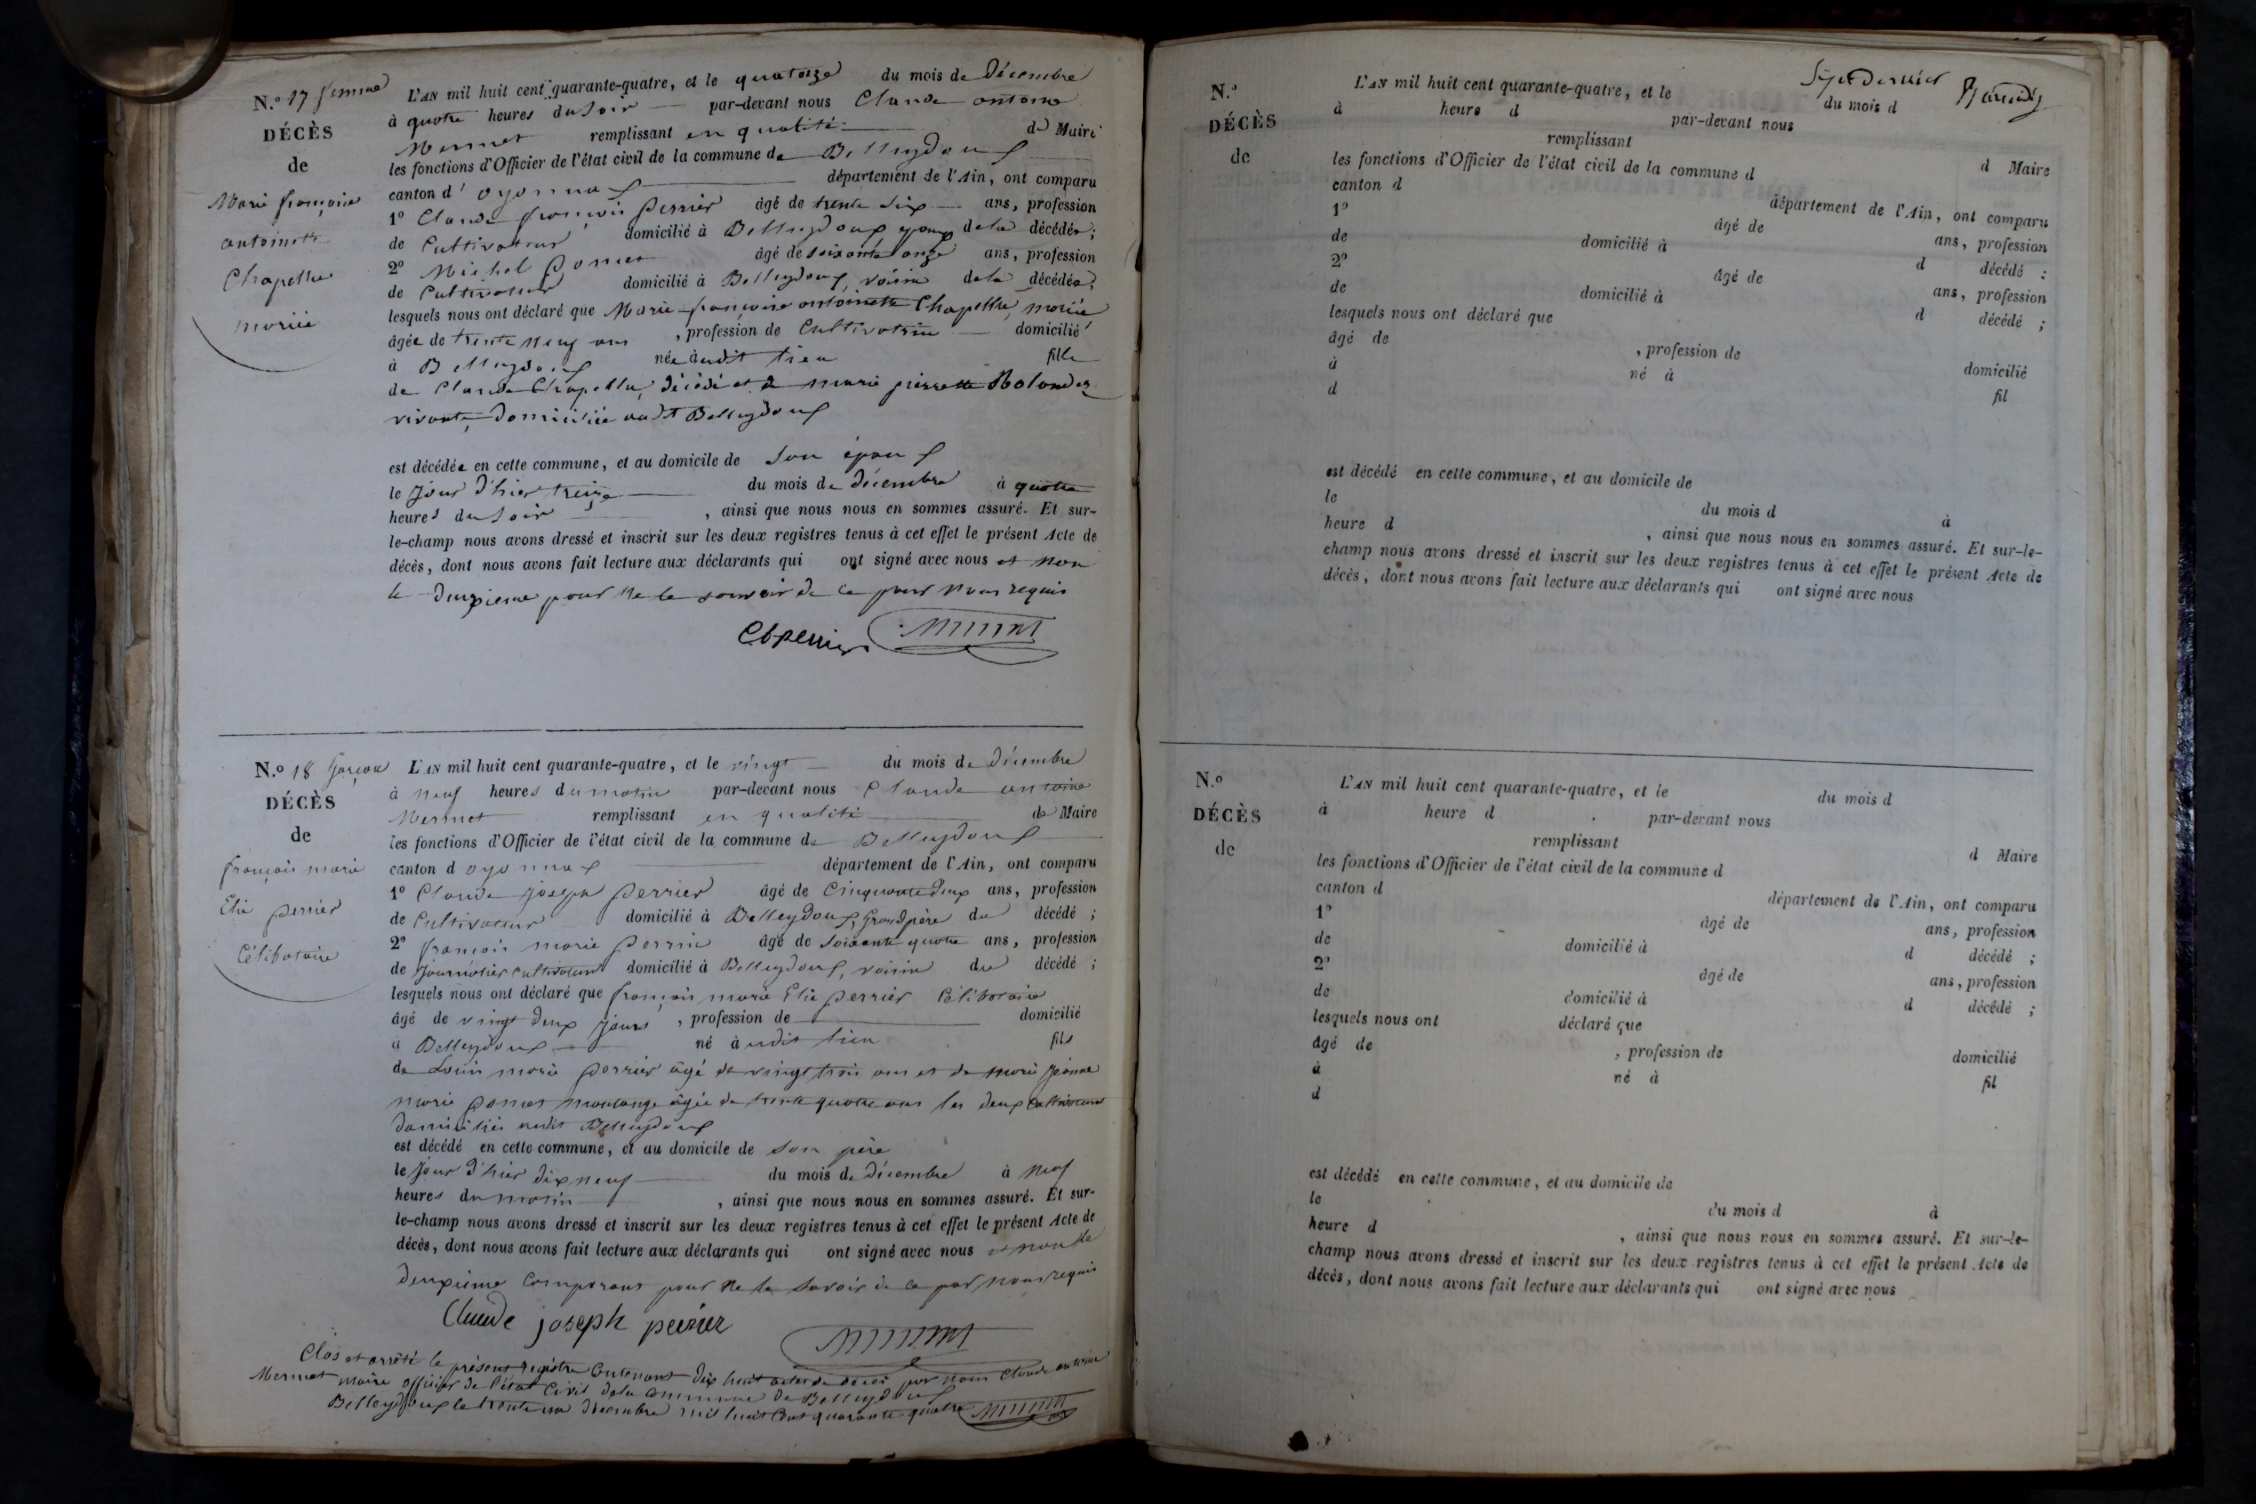 N.o 17 femme
DÉCÈS
de
Marie françoise
antoinette
Chapellu
mariée
L'AN mil huit cent quarante-quatre, et le quatorze du mois de Décembre
à quatre heures du soir par-devant nous Claude antoine
Mermet remplissant en qualité de Maire
les fonctions d'Officier de l'état civil de la commune de Belleydoux
canton d'oyonnax département de l'Ain, ont comparu
1o Claude françois perrier âgé de trente six ans, profession
de Cultivateur domicilié à Belleydoux époux de la décédée;
2o Michel poncet âgé de soixante onze ans, profession
de Cultivateur domicilié à Belleydoux, voisin de la décédée;
lesquels nous ont déclaré que Marie françoise antoinette Chapellu, mariée
âgée de trente neuf ans, profession de Cultivatrice domicilié
à Belleydoux née audit lieu fille
de Claude Chapellu, décédé et de marie pierrette Rolandez
vivante, domiciliée audit Belleydoux
est décédée en cette commune, et au domicile de son époux
le jour d'hier treize du mois de décembre à quatre
heures du soir, ainsi que nous nous en sommes assuré. Et sur-
le-champ nous avons dressé et inscrit sur les deux registres tenus à cet effet le présent Acte de
décès, dont nous avons fait lecture aux déclarants qui ont signé avec nous et non
le deuxieme pour ne le savoir de ce par nous requis
Cfperrier Mermet
N.o 18 garçon
DÉCÈS
de
françois marie
Elie perrier
Célibataire
L'AN mil huit cent quarante-quatre, et le vingt du mois de décembre
à neuf heures du matin par-devant nous Claude antoine
Mermet remplissant en qualité de Maire
les fonctions d'Officier de l'état civil de la commune de Belleydoux
canton d oyonnax département de l'Ain, ont comparu
1o Claude joseph perrier âgé de Cinquante deux ans, profession
de Cultivateur domicilié à Belleydoux, grand père du décédé;
2o françois marie perrin âgé de soixante quatre ans, profession
de journalier cultivateur domicilié à Belleydoux, voisin du décédé;
lesquels nous ont déclaré que françois marie Elie perrier Célibataire
âgé de vingt deux jours, profession de domicilié
à Belleydoux né audit lieu fils
de Louis marie perrier âgé de vingt trois ans et de marie jeanne
marie poncet âgée de trente quatre ans les deux cultivateurs
domiciliés audit Belleydoux
est décédé en cette commune, et au domicile de son père
le jour d'hier dix neuf du mois de décembre à neuf
heures du matin, ainsi que nous nous en sommes assuré. Et sur-
le-champ nous avons dressé et inscrit sur les deux registres tenus à cet effet le présent Acte de
décès, dont nous avons fait lecture aux déclarants qui ont signé avec nous et non le
deuxieme comparant pour ne le savoir de ce par nous requis
Claude joseph perrier
Mermet
Clos et arrêté le présent registre contenant dix huit actes de décès par nous Claude antoine
Mermet maire officier de l'état civil de la commune de Belleydoux
Belleydoux le trente un décembre mil huit cent quarante quatre Mermet
N.o
DÉCÈS
de
L'AN mil huit cent quarante-quatre, et le du mois d
à heure d par-devant nous
remplissant d Maire
les fonctions d'Officier de l'état civil de la commune d
canton d département de l'Ain, ont comparu
1o âgé de ans, profession
de domicilié à d décédé ;
2o âgé de ans, profession
de domicilié à d décédé ;
lesquels nous ont déclaré que
âgé de , profession de domicilié
à né à fil
d
est décédé en cette commune, et au domicile de
le du mois d à
heure d , ainsi que nous nous en sommes assuré. Et sur-le-
champ nous avons dressé et inscrit sur les deux registres tenus à cet effet le présent Acte de
décès, dont nous avons fait lecture aux déclarants qui ont signé avec nous
N.o
DÉCÈS
de
L'AN mil huit cent quarante-quatre, et le du mois d
à heure d par-devant nous
remplissant d Maire
les fonctions d'Officier de l'état civil de la commune d
canton d département de l'Ain, ont comparu
1o âgé de ans, profession
de domicilié à d décédé ;
2o âgé de ans, profession
de domicilié à d décédé ;
lesquels nous ont déclaré que
âgé de , profession de domicilié
à né à fil
d
est décédé en cette commune, et au domicile de
le du mois d à
heure d , ainsi que nous nous en sommes assuré. Et sur-le-
champ nous avons dressé et inscrit sur les deux registres tenus à cet effet le présent Acte de
décès, dont nous avons fait lecture aux déclarants qui ont signé avec nous